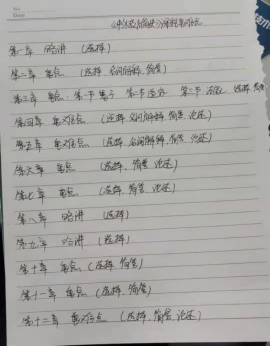 第一章 略讲 (选择)
第二章 重点 (选择 名词解释, 简答)
第三章 重点 第一节 第二节 第三节 选择
第四章 重难点 (选择 名词解释, 简答, 论述)
第五章 重难点 (选择, 名词解释, 简答, 论述)
第六章 重点 (选择, 简答 论述)
第七章 重点 (选择, 简答, 论述)
第八章 略讲 (选择)
第九章 略讲 (选择)
第十章 重点 (选择, 简答)
第十一章 重点 (选择, 简答)
第十二章 重难点 (选择, 简答 论述)